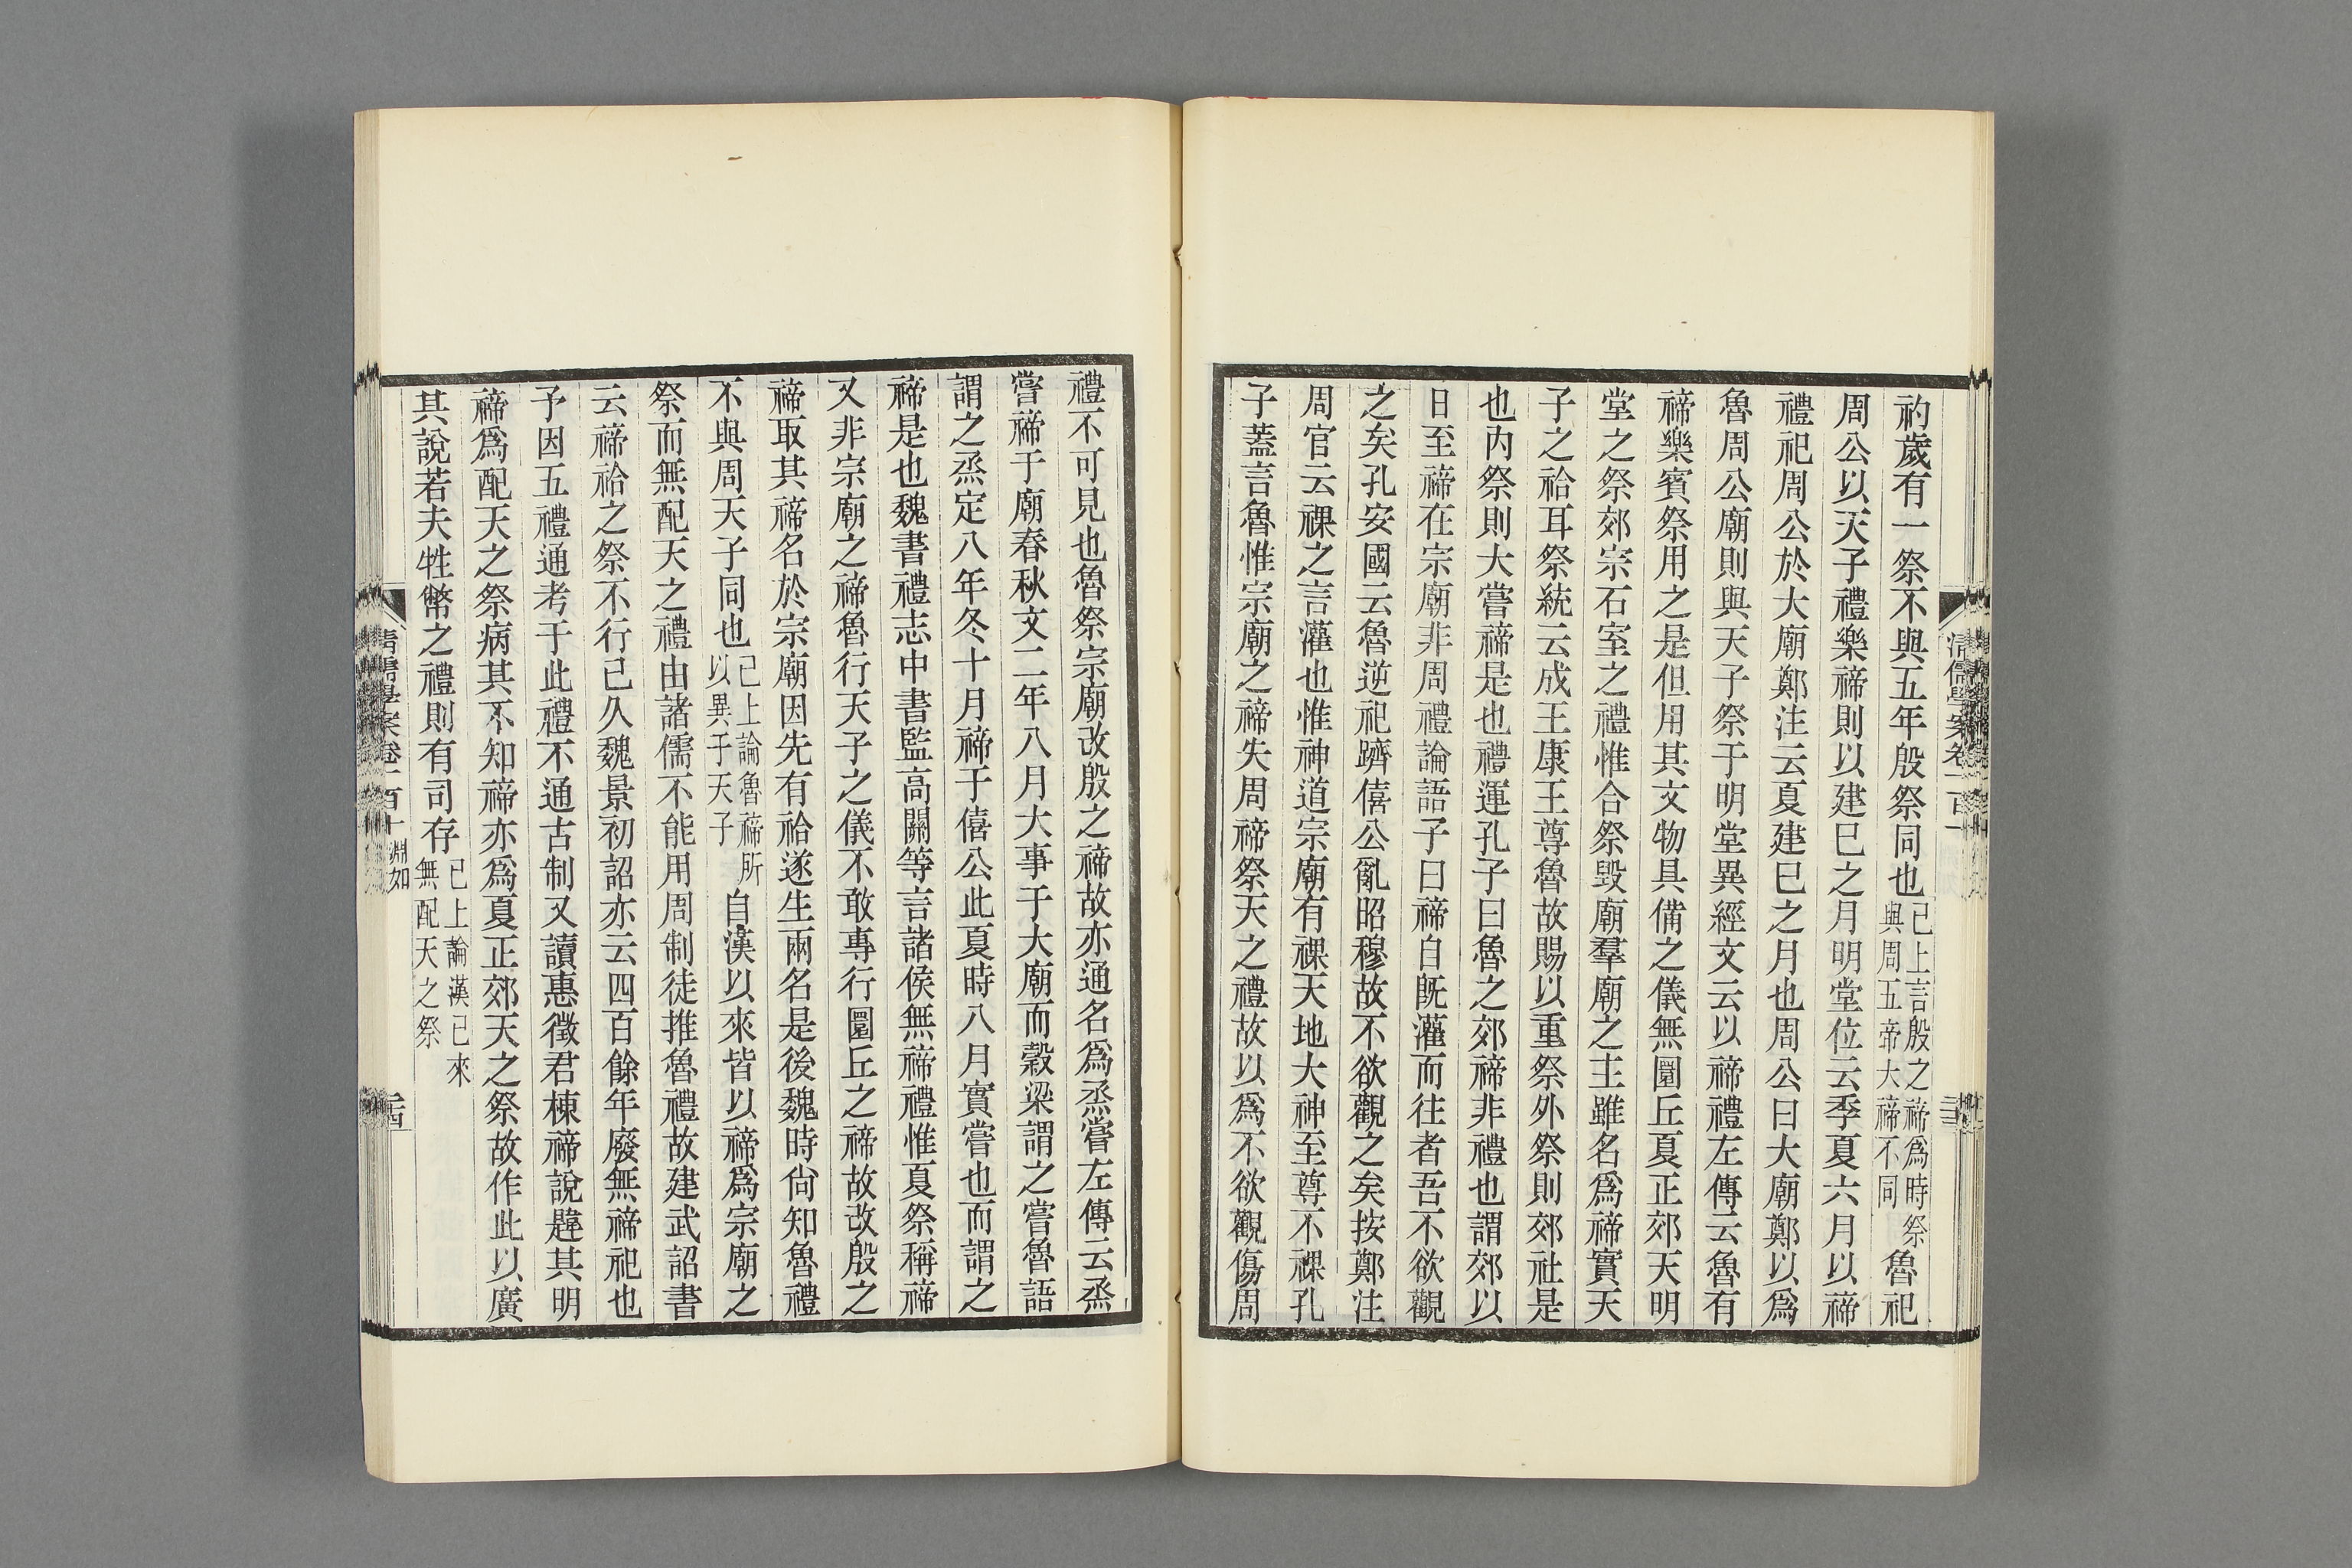 礿歲有一祭不與五年殷祭同也已上言殷之禘爲時祭與周五帝大禘不同魯祀
周公以天子禮樂禘則以建巳之月明堂位云季夏六月以禘
禮祀周公於大廟鄭注云夏建巳之月也周公曰大廟鄭以爲
魯周公廟則與天子祭于明堂異經文云以禘禮左傳云魯有
禘樂賓祭用之是但用其文物具備之儀無圜丘夏正郊天明
堂之祭郊宗石室之禮惟合祭毀廟羣廟之主雖名爲禘實天
子之祫耳祭統云成王康王尊魯故賜以重祭外祭則郊社是
也內祭則大嘗禘是也禮運孔子曰魯之郊禘非禮也謂郊以
日至禘在宗廟非周禮論語子曰禘自旣灌而往者吾不欲觀
之矣孔安國云魯逆祀躋僖公亂昭穆故不欲觀之矣按鄭注
周官云祼之言灌也惟神道宗廟有祼天地大神至尊不祼孔
子蓋言魯惟宗廟之禘失周禘祭天之禮故以爲不欲觀傷周
禮不可見也魯祭宗廟改殷之禘故亦通名爲烝嘗左傳云烝
嘗禘于廟春秋文二年八月大事于大廟而穀梁謂之嘗魯語
謂之烝定八年冬十月禘于僖公此夏時八月實嘗也而謂之
禘是也魏書禮志中書監高閭等言諸侯無禘禮惟夏祭稱禘
又非宗廟之禘魯行天子之儀不敢專行圜丘之禘故改殷之
禘取其禘名於宗廟因先有祫遂生兩名是後魏時尙知魯禮
不與周天子同也已上論魯禘所以異于天子自漢以來皆以禘爲宗廟之
祭而無配天之禮由諸儒不能用周制徒推魯禮故建武詔書
云禘祫之祭不行已久魏景初詔亦云四百餘年廢無禘祀也
予因五禮通考于此禮不通古制又讀惠徵君棟禘說韙其明
禘爲配天之祭病其不知禘亦爲夏正郊天之祭故作此以廣
其說若夫牲幣之禮則有司存已上論漢已來無配天之祭